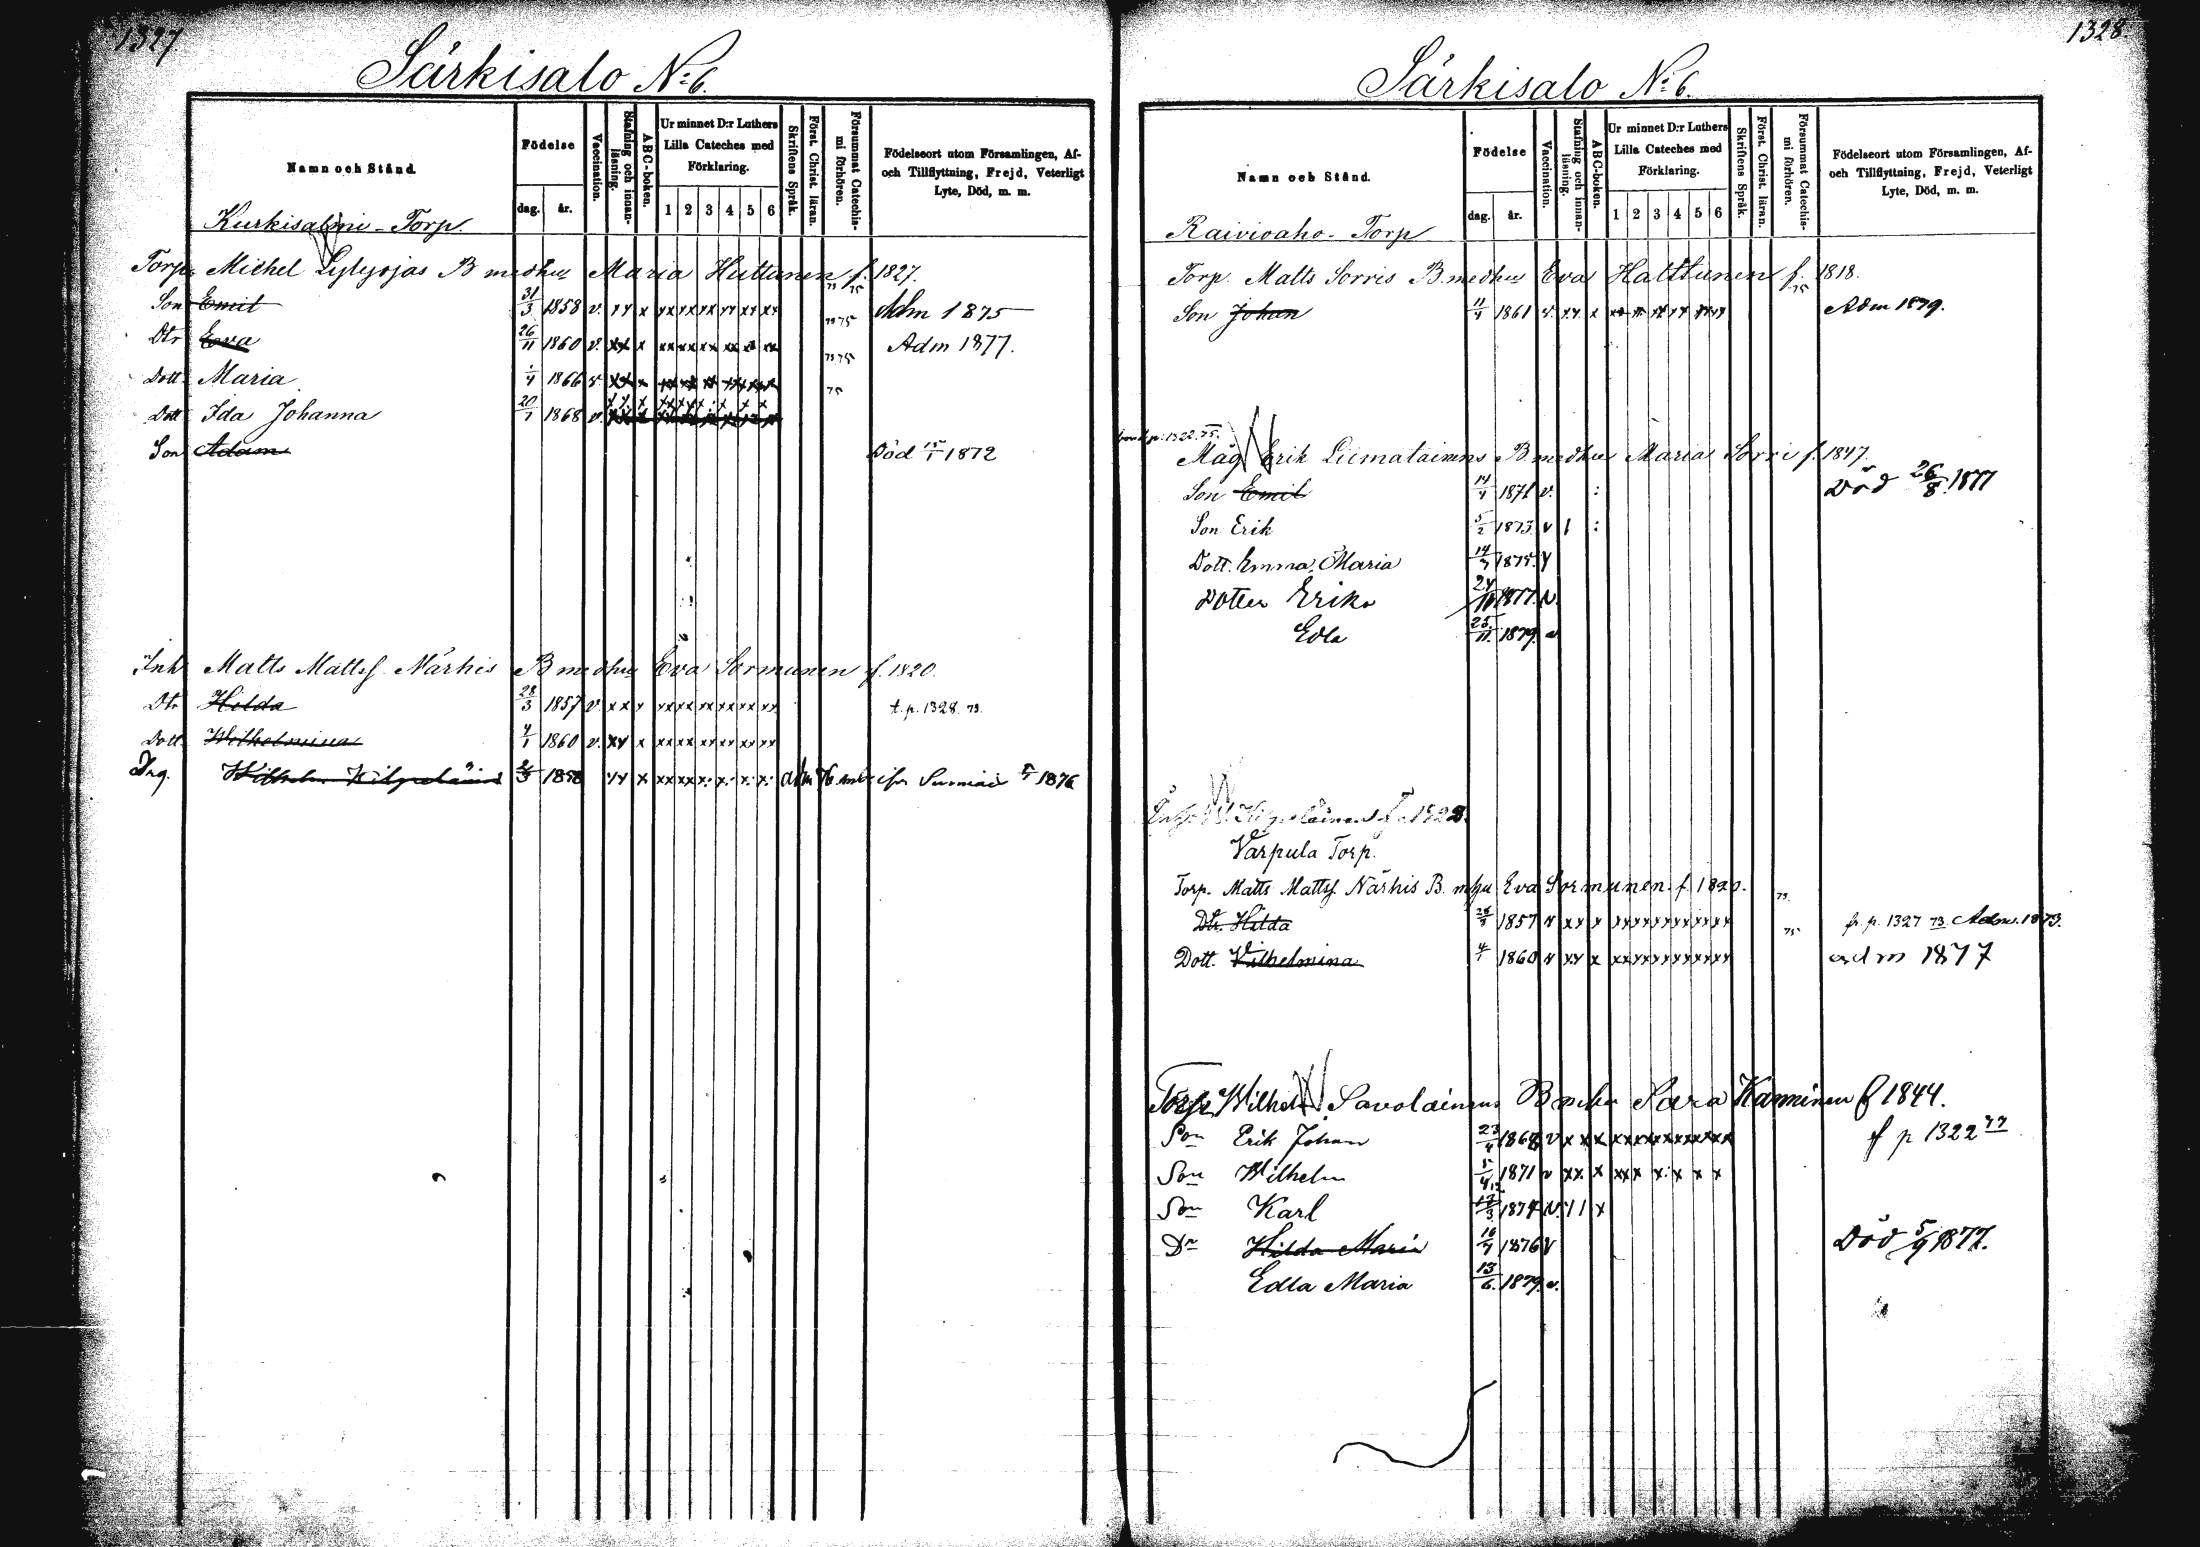 1327
Särkisalo No 6.
Namn och Stånd.
Födelse
dag. år.
Vaccination.
Stafning och innan-läsning.
ABC-boken.
Ur minnet D:r Luthers Lilla Cateches med Förklaring.
1 2 3 4 5 6
Skriftens Språk.
Först. Christ. läran.
Försummat Catechis-mi förhören.
Födelseort utom Församlingen, Af-
och Tillflyttning, Frejd, Veterligt
Lyte, Död, m. m.
Kurkisalmi - Torp.
Torp. Michel Lylyojas B medhu Maria Huttunen f. 1827.
Son Emil 31/3 1858 v. xx x xx xx xx xx xx xx 73 75 Adm 1875
Dtr Eva 26/11 1860 v. xx x xx xx xx xx xx xx 73 75 Adm 1877.
Dott. Maria 1866 v xx x xx xx xx xx xx xx 73 75
Dott Ida Johanna 20/7 1868 v. 75
Son Adam Död 15/1 1872
Inh. Matts Mattsf. Närhis B medhu Eva Sormunen f. 1820.
Dtr Hilda 28/3 1857 v. xx x xx xx xx xx xx xx t. p. 1328. 73.
Dott. Wilhelmina 4/1 1860 v. xx x xx xx xx xx xx xx
Drg. Wilhelm Kilpeläinen 1858 xx x
1876
1328.
Särkisalo No 6.
Namn och Stånd.
Födelse
dag. år.
Vaccination.
Stafning och innan-läsning.
ABC-boken.
Ur minnet D:r Luthers Lilla Cateches med Förklaring.
1 2 3 4 5 6
Skriftens Språk.
Först. Christ. läran.
Försummat Catechis-mi förhören.
Födelseort utom Församlingen, Af-
och Tillflyttning, Frejd, Veterligt
Lyte, Död, m. m.
Raivioaho - Torp
Torp. Matts Sorris B. medhu Eva Halttunen f. 1818.
Son Johan 11/4 1861 v xx x xx xx xx xx xx xx 75 Adm 1879.
p. 1322. 75.
Måg Erik Liimatainens B medhu Maria Sorri f. 1847.
Son Emil 14/1 1871 v. : Död 26/8 1877
Son Erik 5/2 1873. v 1 :
Dott. Emma Maria 14/7 1875. v
Dotter Erika 24/10 1877. v.
Edla 25/11 1879. v.
Kilpeläinen f. 1828.
Varpula Torp.
Torp. Matts Mattsf Närhis B. mhu Eva Sormunen. f. 1820.
Dtr. Hilda 28/3 1857 v xx x xx xx xx xx xx xx 73 fr. p. 1327 73. Adm. 1873.
Dott. Vilhelmina 4/1 1860 v xx x xx xx xx xx xx xx 75 adm 1877
Torp. Wilhelm Savolainens B mhu Sara Kanninen f 1844.
Son Erik Johan 23/4 1868 v xx x xx xx xx xx xx xx f p 1322 77
Son Wilhelm 1871 v xx. x xxx x. x x x
Son Karl 12/3 1874 v. 11 x
Dr Hilda Maria 16/4 1876 v Död 5/9 1877.
Edla Maria 13/6. 1879. v.